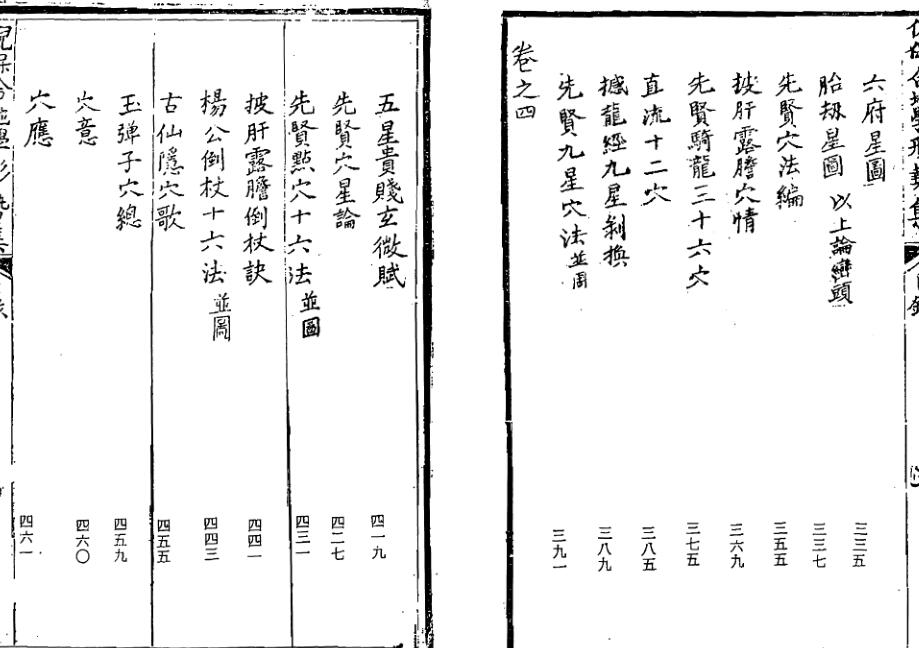 六府星圖 三三五
胎刼星圖 以上論巒頭 三三七
先賢穴法編 三五五
披肝露膽穴情 三六九
先賢騎龍三十六穴 三七五
直流十二穴 三八五
撼龍經九星剝換 三八九
先賢九星穴法 並圖 三九一
卷之四
五星貴賤玄微賦 四一九
先賢穴星論 四二七
先賢點穴十六法 並圖 四三一
披肝露膽倒杖訣 四四一
楊公倒杖十六法 並圖 四四三
古仙隱穴歌 四五五
玉彈子穴總 四五九
穴意 四六〇
穴應 四六一